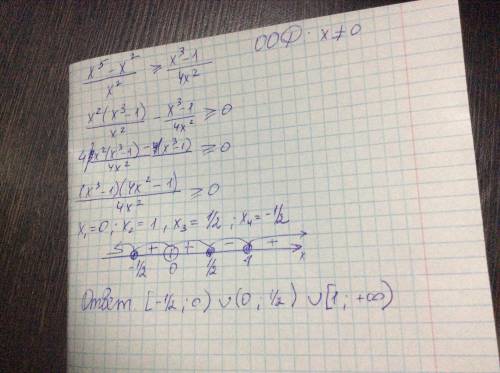 ООФ: x ≠ 0
(x⁵ - x²)/x² ≥ (x³ - 1)/4x²
x²(x³-1)/x² - (x³-1)/4x² ≥ 0
(4x²(x³-1) - (x³-1))/4x² ≥ 0
(x³-1)(4x²-1)/4x² ≥ 0
x₁=0; x₂=1, x₃=1/2; x₄=-1/2
- + + - +
-1/2 0 1/2 1 x
Ответ. [-1/2; 0) ∪ (0; 1/2) ∪ [1; +∞)